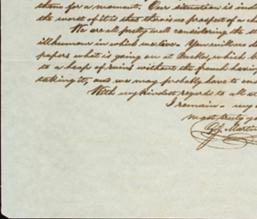 them for a moment. Our situation is ind
the worst of it is that there is no prospect of a ch
We are all pretty well considering the st
ill humour in which we live. You will see
papers what is going on at Puebla, which
to a heap of ruins without the french having
taking it, and we may probably have to
With my kindest regards to all at
I remain - my
most truly
Martin